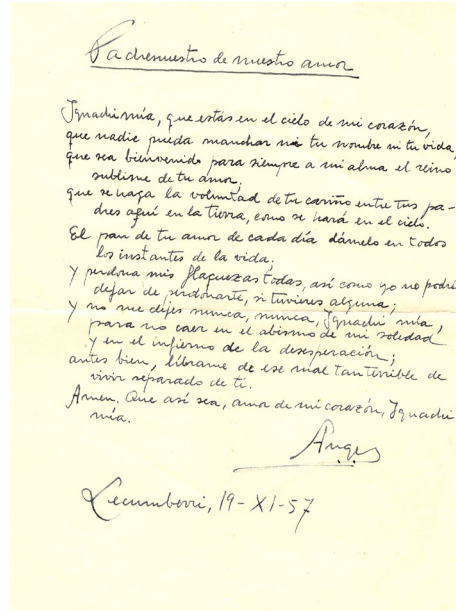 Padrenuestro de nuestro amor
Ignachi mía, que estás en el cielo de mi corazón,
que nadie pueda manchar ni tu nombre ni tu vida,
que sea bienvenido para siempre a mi alma el reino
sublime de tu amor,
que se haga la voluntad de tu cariño entre tus pa-
dres aquí en la tierra, como se hará en el cielo.
El pan de tu amor de cada día dámelo en todos
los instantes de la vida;
y perdona mis flaquezas todas, así como yo no podré
dejar de perdonarte, si tuvieres alguna;
y no me dejes nunca, nunca, Ignachi mía,
para no caer en el abismo de mi soledad
y en el infierno de la desesperación;
antes bien, líbrame de ese mal tan terrible de
vivir separado de ti.
Amen. Que así sea, amor de mi corazón, Ignachi
mía.
Lecumberri, 19-XI-57